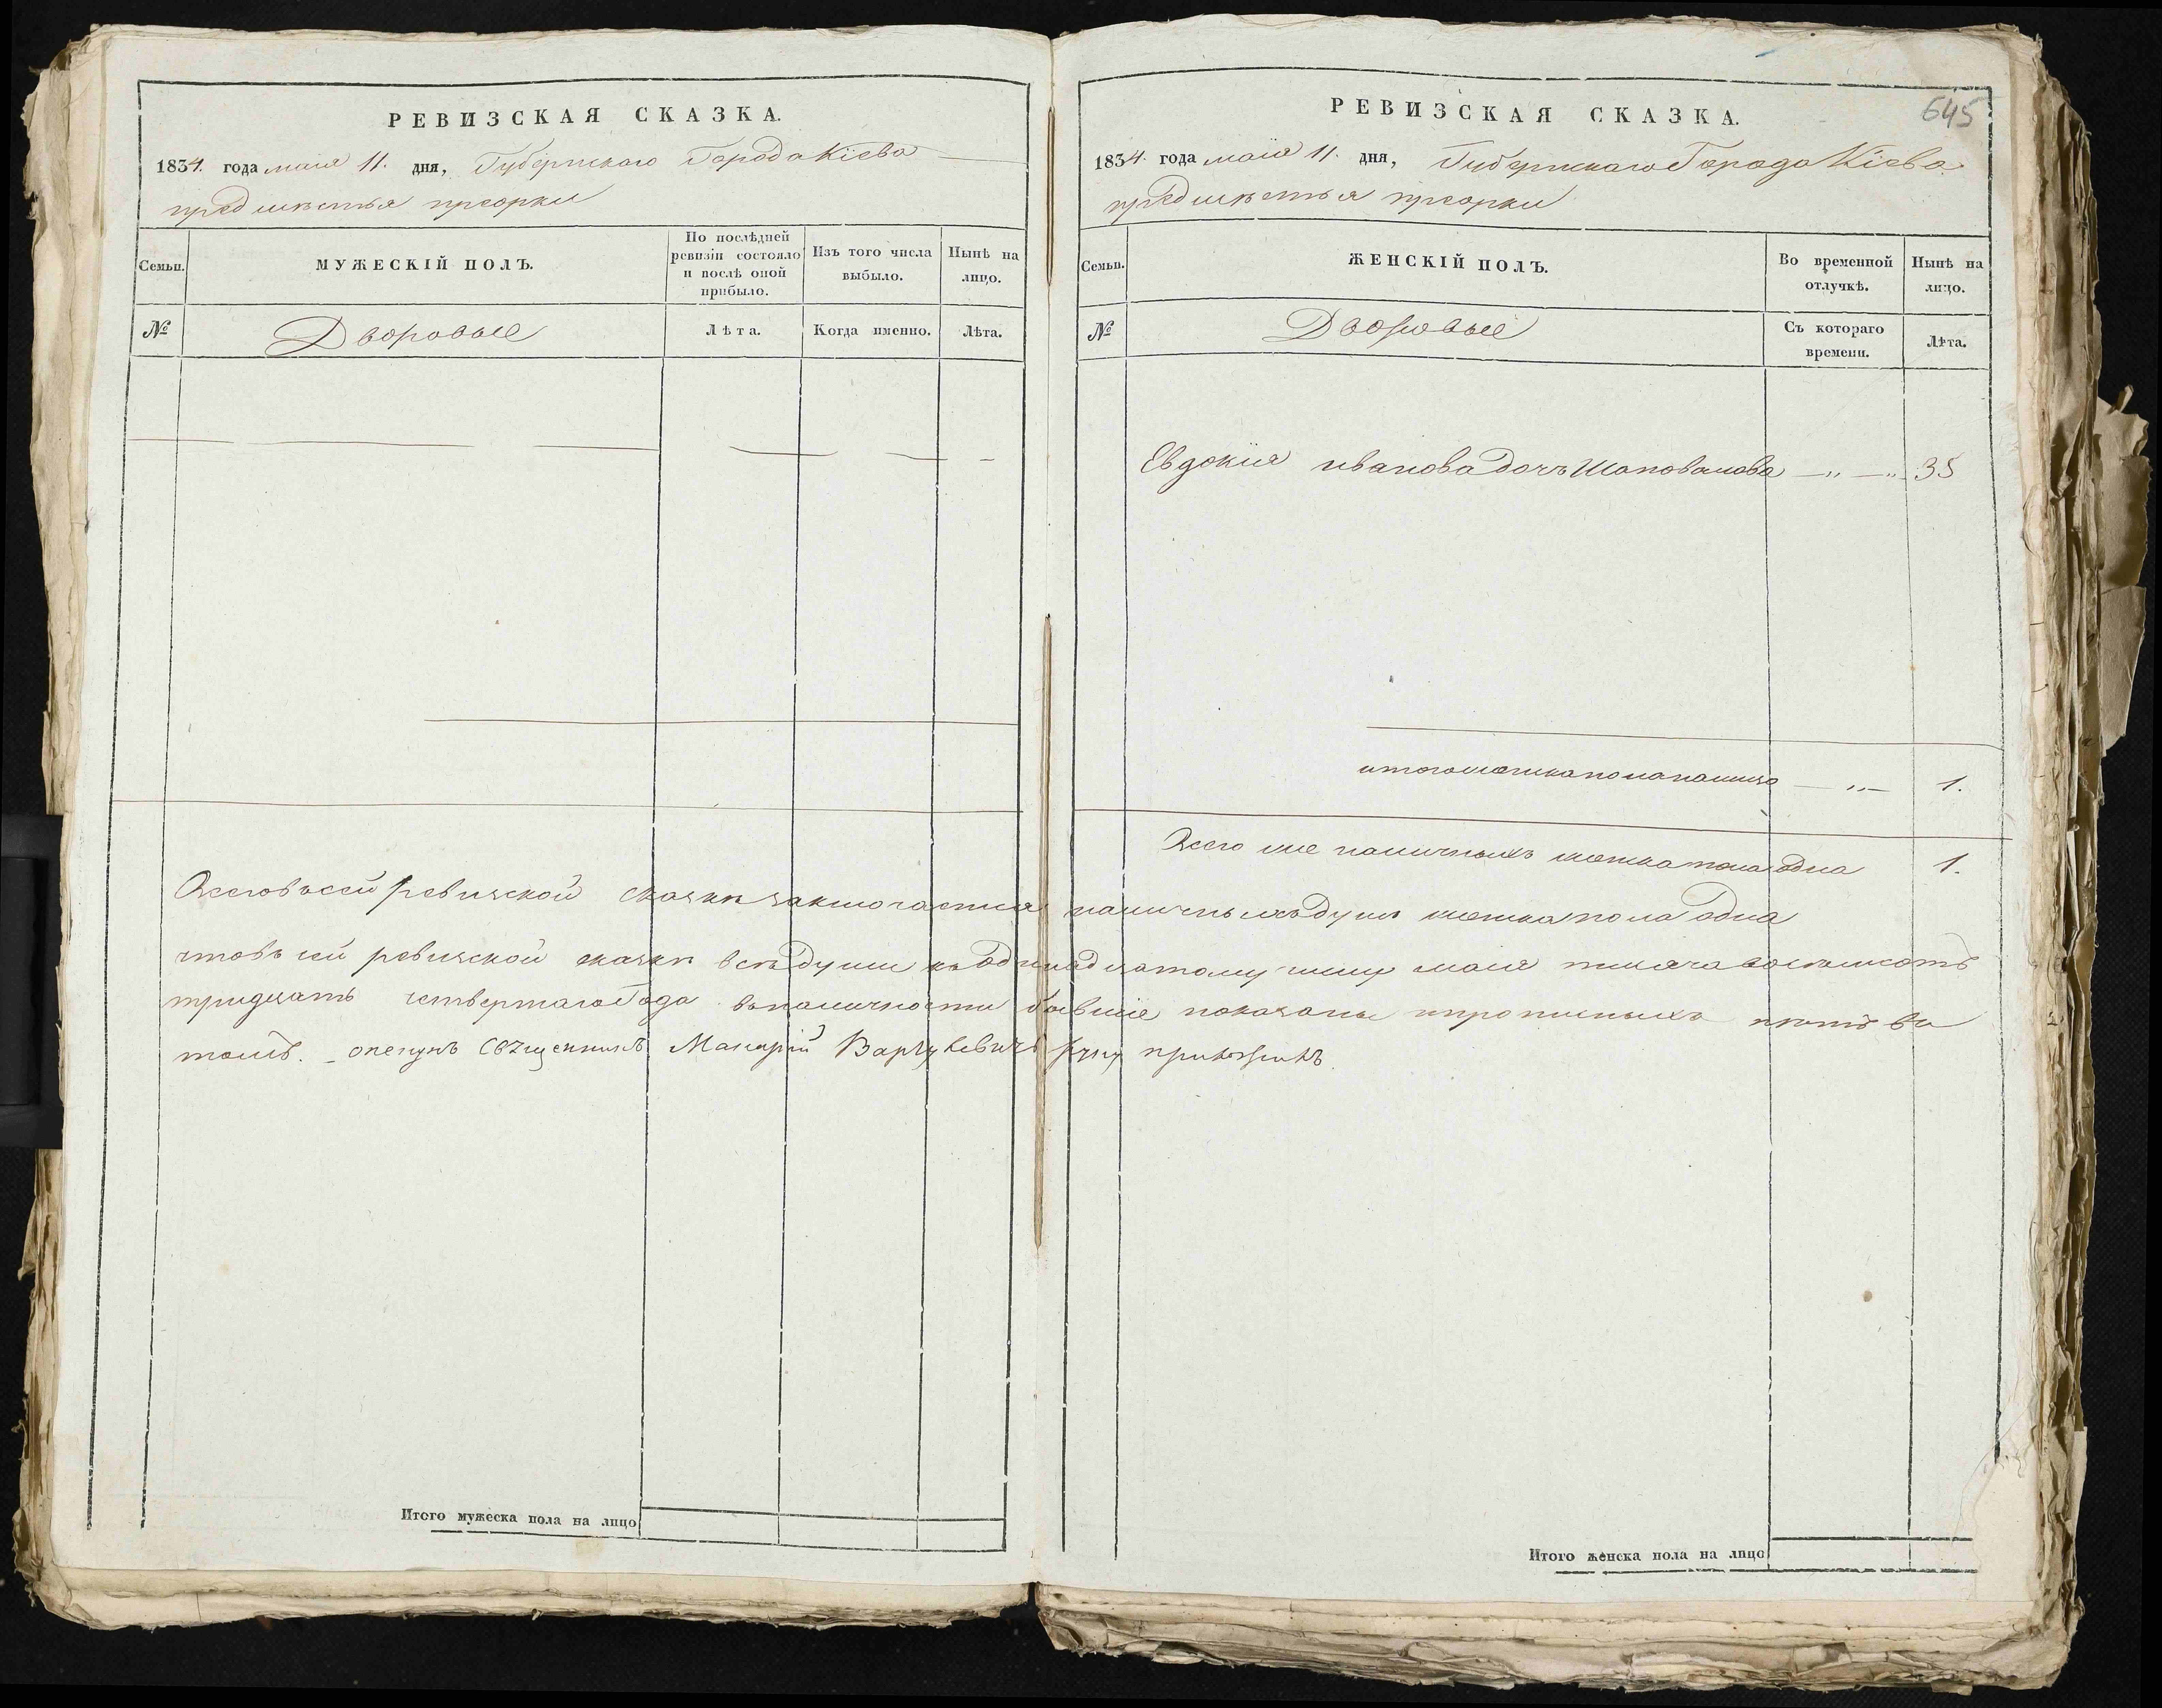 РЕВИЗСКАЯ СКАЗКА.
1834. года маия 11. дня, Губернскаго Города Кіева
предмѣстья преорки
Семьи.
МУЖЕСКІЙ ПОЛЪ.
По послѣдней
ревизіи состояло
и послѣ оной
прибыло.
Изъ того числа
выбыло.
Нынѣ на
лицо.
№
Дворовые
Лѣта.
Когда именно.
Лѣта.
Итого мужеска пола на лицо
645
РЕВИЗСКАЯ СКАЗКА.
1834. года маія 11. дня, Губернскаго Города Кіева
предмѣстья преорки
Семьи.
ЖЕНСКІЙ ПОЛЪ.
Во временной
отлучкѣ.
Нынѣ на
лицо.
№
Дворовые
Съ котораго
времени.
Лѣта.
Евдокия иванова дочь Шаповалова — „ — „ 35
итого женска пола налицо — „ — 1.
Всего же наличныхъ женска пола одна 1.
Всего в сей ревизской сказкѣ заключается наличныхъ душъ женска пола одна
что въ сей ревизской сказкѣ всѣ души къ одинадцатому числу маия тысяча восемьсотъ
тридцать четвертаго Года въ наличности бывшіе показаны и прописныхъ нѣтъ въ
томъ. — опекунъ Священникъ Макарій Варзукевичъ руку приложилъ.
Итого женска пола на лицо